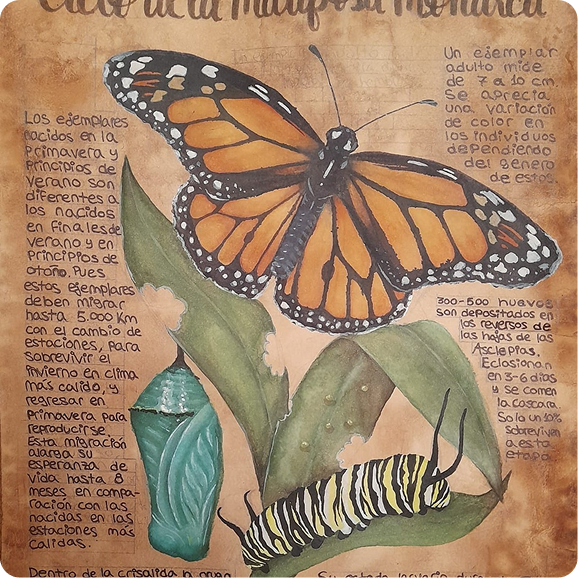 Ciclo de la Mariposa Monarca
Un ejemplar
adulto mide
de 7 a 10 cm.
Se aprecia
una variación
de color en
los individuos
dependiendo
del genero
de estos.
Los ejemplares
nacidos en la
primavera y
principios de
verano son
diferentes a
los nacidos
en finales de
verano y en
principios de
otoño. Pues
estos ejemplares
deben migrar
hasta 5.000 Km
con el cambio de
estaciones, para
sobrevivir el
invierno en clima
más calido, y
regresar en
primavera para
reproducirse.
Esta migración
alarga su
esperanza de
vida hasta 8
meses en compa-
ración con las
nacidas en las
estaciones más
calidas.
300-500 huevos
son depositados en
los reversos de
las hojas de las
Asclepias.
Eclosionan
en 3-6 dias
y se comen
la cascara.
Solo un 10%
sobreviven
a esta
etapa.
Dentro de la crisalida la oruga
Su estado larvario dura